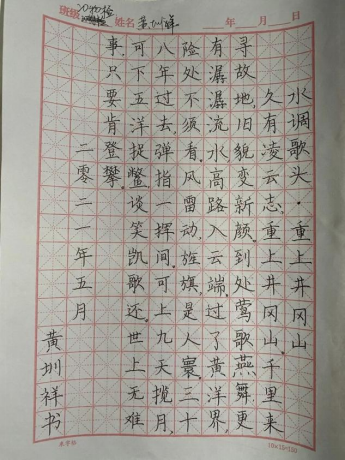 班级 姓名 年 月 日
水调歌头·重上井冈山
久有凌云志,重上井冈山。千里来
寻故地,旧貌变新颜。到处莺歌燕舞,更
有潺潺流水,高路入云端。过了黄洋界,
险处不须看。风雷动,旌旗是人寰。三十
八年过去,弹指一挥间。可上九天揽月,
可下五洋捉鳖,谈笑凯歌还。世上无难
事,只要肯登攀。
二零二一年五月
黄圳祥书
10×15=150